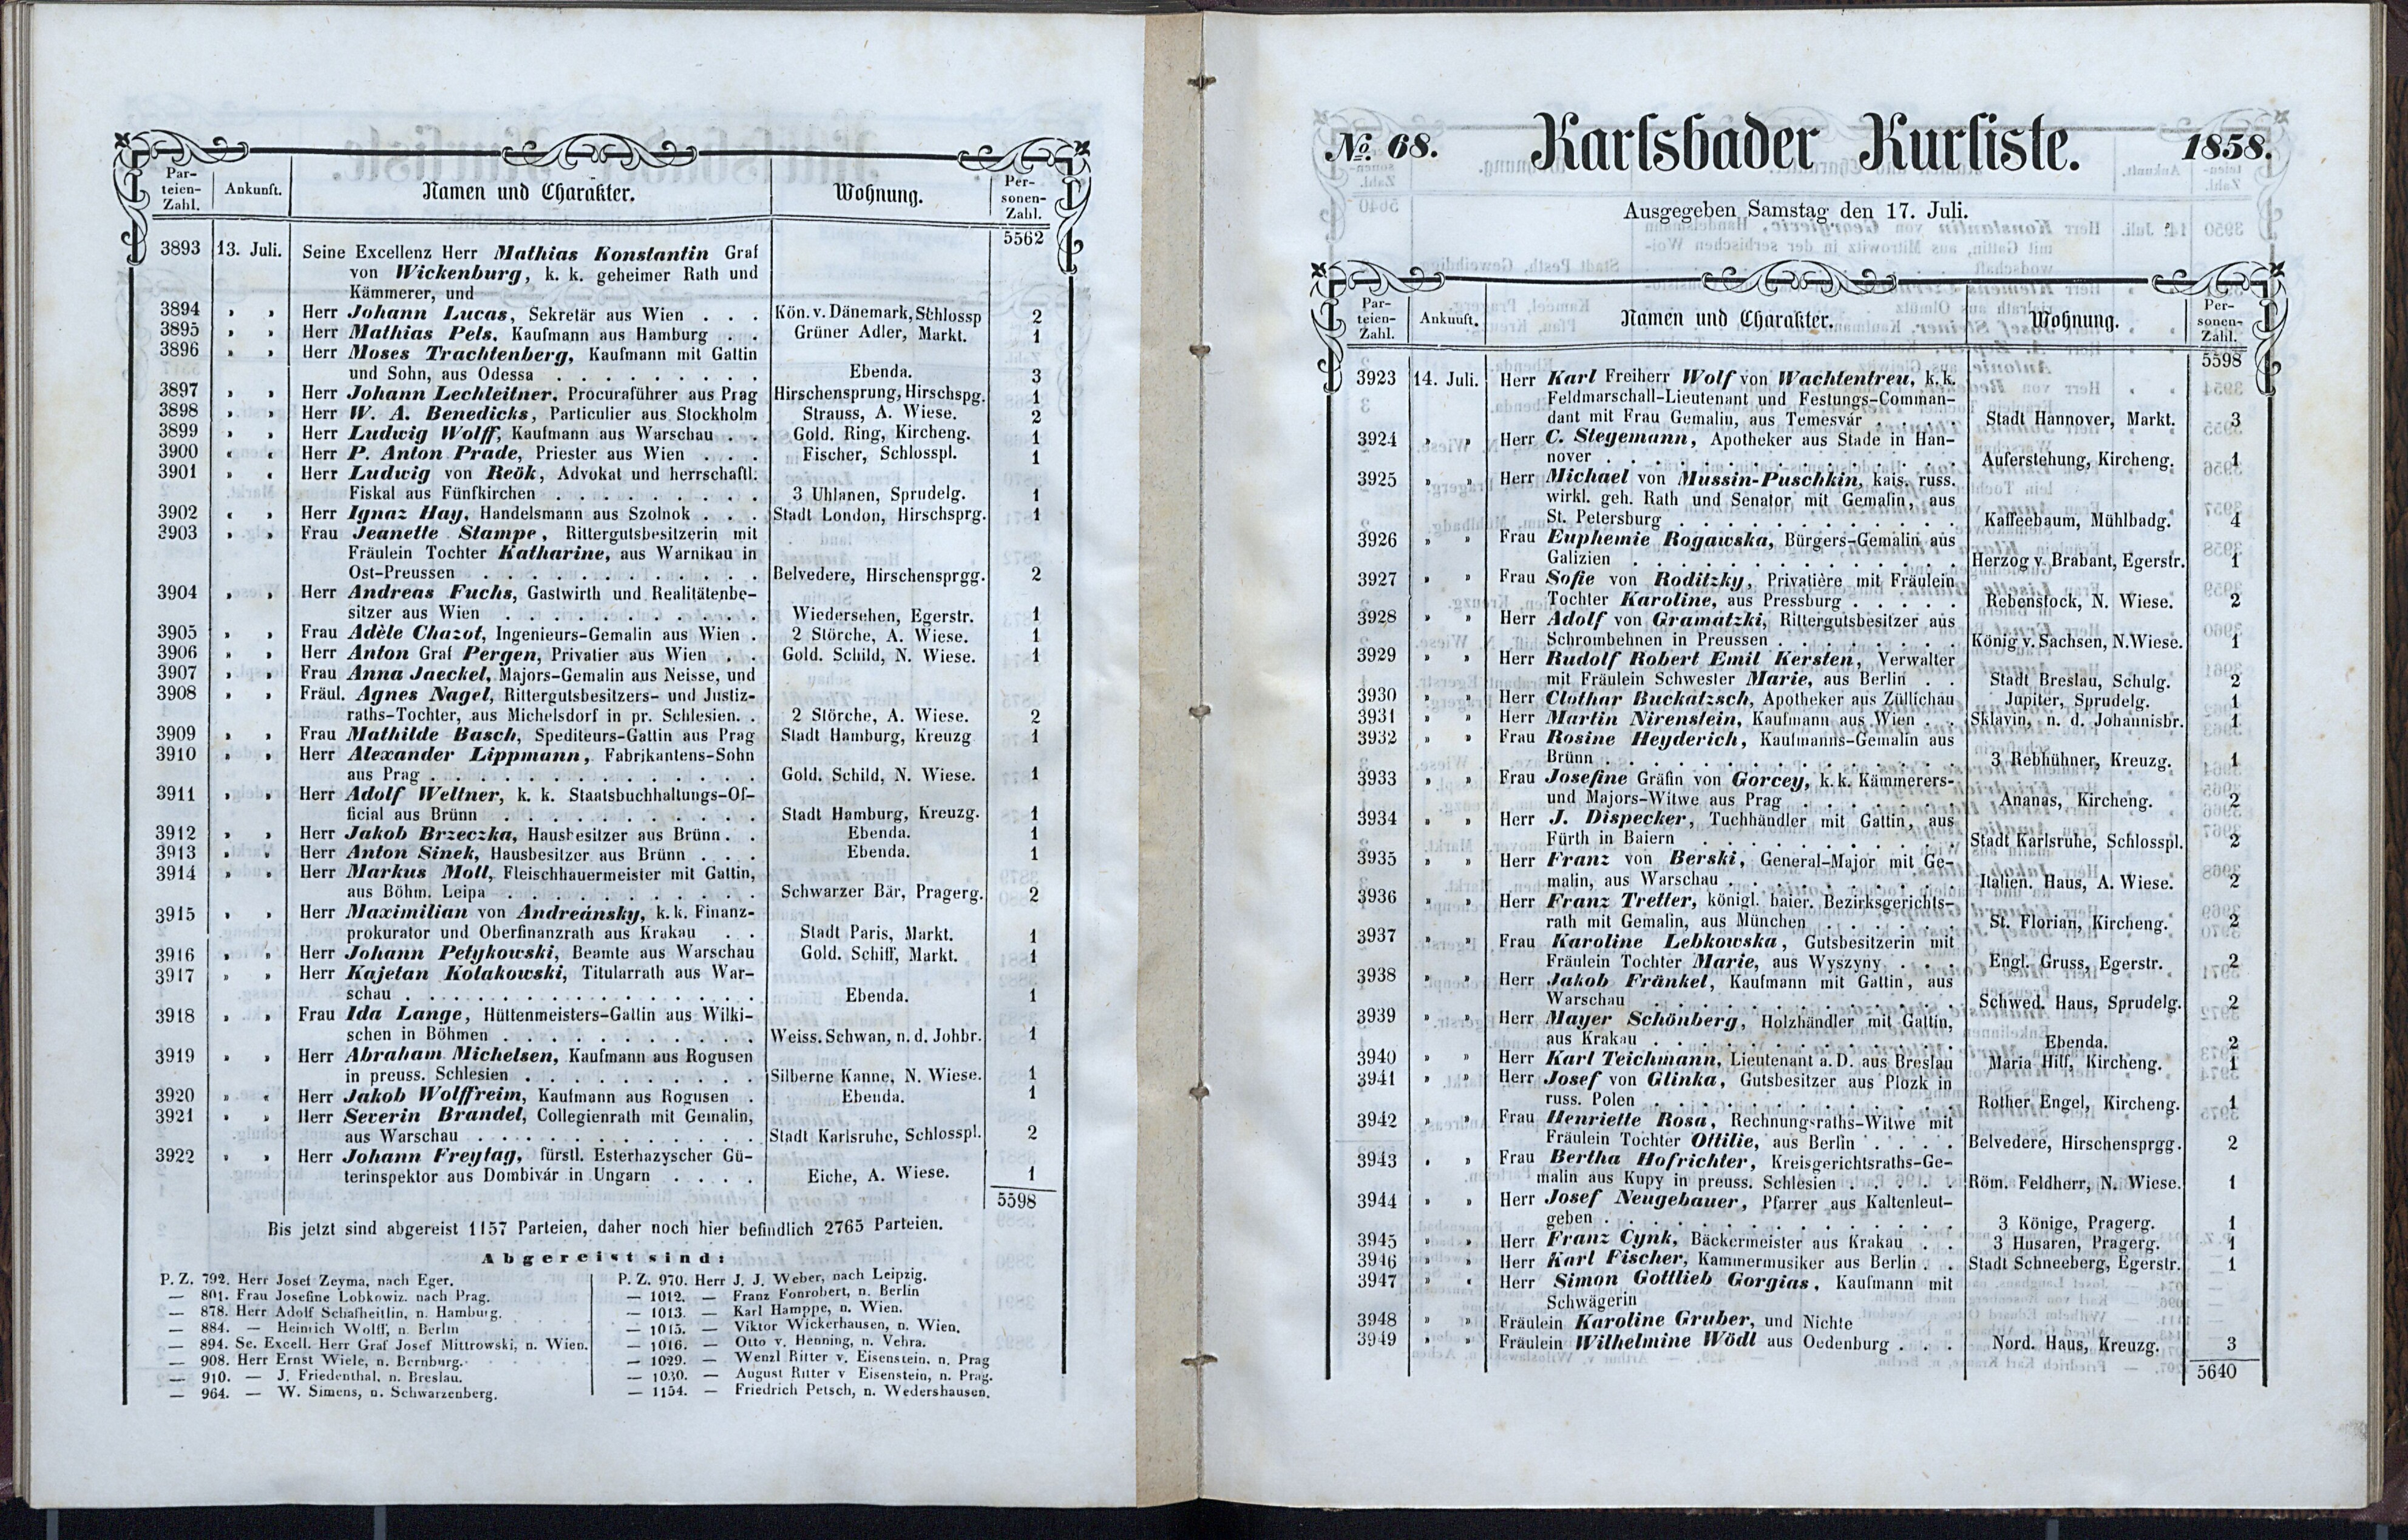 Par-
teien-
Zahl.
Ankunft.
Namen und Charakter.
Wohnung.
Per-
sonen-
Zahl.
5562
3893 13. Juli. Seine Excellenz Herr Mathias Konstantin Graf
von Wickenburg, k. k. geheimer Rath und
Kämmerer, und
3894 „ „ Herr Johann Lucas, Sekretär aus Wien . . . Kön. v. Dänemark, Schlossp 2
3895 „ „ Herr Mathias Pels, Kaufmann aus Hamburg . . Grüner Adler, Markt. 1
3896 „ „ Herr Moses Trachtenberg, Kaufmann mit Gattin
und Sohn, aus Odessa . . . . . . . . . Ebenda. 3
3897 „ „ Herr Johann Lechleitner, Procuraführer aus Prag Hirschensprung, Hirschspg. 1
3898 „ „ Herr W. A. Benedicks, Particulier aus Stockholm Strauss, A. Wiese. 2
3899 „ „ Herr Ludwig Wolff, Kaufmann aus Warschau . . Gold. Ring, Kircheng. 1
3900 „ „ Herr P. Anton Prade, Priester aus Wien . . . Fischer, Schlosspl. 1
3901 „ „ Herr Ludwig von Reök, Advokat und herrschaftl.
Fiskal aus Fünfkirchen . . . . . . . . . 3 Uhlanen, Sprudelg. 1
3902 „ „ Herr Ignaz Hay, Handelsmann aus Szolnok . . . Stadt London, Hirschsprg. 1
3903 „ „ Frau Jeanette Stampe, Rittergutsbesitzerin mit
Fräulein Tochter Katharine, aus Warnikau in
Ost-Preussen . . . . . . . . . . . . Belvedere, Hirschensprgg. 2
3904 „ „ Herr Andreas Fuchs, Gastwirth und Realitätenbe-
sitzer aus Wien . . . . . . . . . . . Wiedersehen, Egerstr. 1
3905 „ „ Frau Adèle Chazot, Ingenieurs-Gemalin aus Wien . 2 Störche, A. Wiese. 1
3906 „ „ Herr Anton Graf Pergen, Privatier aus Wien . . Gold. Schild, N. Wiese. 1
3907 „ „ Frau Anna Jaeckel, Majors-Gemalin aus Neisse, und
3908 „ „ Fräul. Agnes Nagel, Rittergutsbesitzers- und Justiz-
raths-Tochter, aus Michelsdorf in pr. Schlesien. . 2 Störche, A. Wiese. 2
3909 „ „ Frau Mathilde Basch, Spediteurs-Gattin aus Prag Stadt Hamburg, Kreuzg 1
3910 „ „ Herr Alexander Lippmann, Fabrikantens-Sohn
aus Prag . . . . . . . . . . . . . . Gold. Schild, N. Wiese. 1
3911 „ „ Herr Adolf Weltner, k. k. Staatsbuchhaltungs-Of-
ficial aus Brünn . . . . . . . . . . . Stadt Hamburg, Kreuzg. 1
3912 „ „ Herr Jakob Brzeczka, Hausbesitzer aus Brünn. . Ebenda. 1
3913 „ „ Herr Anton Sinek, Hausbesitzer aus Brünn . . . Ebenda. 1
3914 „ „ Herr Markus Moll, Fleischhauermeister mit Gattin,
aus Böhm. Leipa . . . . . . . . . . . Schwarzer Bär, Pragerg. 2
3915 „ „ Herr Maximilian von Andreánsky, k. k. Finanz-
prokurator und Oberfinanzrath aus Krakau . . Stadt Paris, Markt. 1
3916 „ „ Herr Johann Petykowski, Beamte aus Warschau Gold. Schiff, Markt. 1
3917 „ „ Herr Kajetan Kolakowski, Titularrath aus War-
schau . . . . . . . . . . . . . . . Ebenda. 1
3918 „ „ Frau Ida Lange, Hüttenmeisters-Gattin aus Wilki-
schen in Böhmen . . . . . . . . . . . Weiss. Schwan, n. d. Johbr. 1
3919 „ „ Herr Abraham Michelsen, Kaufmann aus Rogusen
in preuss. Schlesien . . . . . . . . . . Silberne Kanne, N. Wiese. 1
3920 „ „ Herr Jakob Wolffreim, Kaufmann aus Rogusen . Ebenda. 1
3921 „ „ Herr Severin Brandel, Collegienrath mit Gemalin,
aus Warschau . . . . . . . . . . . . Stadt Karlsruhe, Schlosspl. 2
3922 „ „ Herr Johann Freytag, fürstl. Esterhazyscher Gü-
terinspektor aus Dombivár in Ungarn . . . . Eiche, A. Wiese. 1
5598
Bis jetzt sind abgereist 1157 Parteien, daher noch hier befindlich 2765 Parteien.
Abgereist sind:
P. Z. 792. Herr Josef Zeyma, nach Eger.
— 801. Frau Josefine Lobkowiz, nach Prag.
— 878. Herr Adolf Schafheitlin, n. Hamburg.
— 884. — Heinrich Wolff, n. Berlin
— 894. Se. Excell. Herr Graf Josef Mittrowski, n. Wien.
— 908. Herr Ernst Wiele, n. Bernburg.
— 910. — J. Friedenthal, n. Breslau.
— 964. — W. Simens, n. Schwarzenberg.
P. Z. 970. Herr J. J. Weber, nach Leipzig.
— 1012. — Franz Fonrobert, n. Berlin
— 1013. — Karl Hamppe, n. Wien.
— 1015. — Viktor Wickerhausen, n. Wien.
— 1016. — Otto v. Henning, n. Vehra.
— 1029. — Wenzl Ritter v. Eisenstein, n. Prag
— 1030. — August Ritter v Eisenstein, n. Prag.
— 1154. — Friedrich Petsch, n. Wedershausen.
No. 68. Karlsbader Kurliste. 1858.
Ausgegeben Samstag den 17. Juli.
Par-
teien-
Zahl.
Ankunft.
Namen und Charakter.
Wohnung.
Per-
sonen-
Zahl.
5598
3923 14. Juli. Herr Karl Freiherr Wolf von Wachtentreu, k. k.
Feldmarschall-Lieutenant und Festungs-Comman-
dant mit Frau Gemalin, aus Temesvár . . . . Stadt Hannover, Markt. 3
3924 „ „ Herr C. Stegemann, Apotheker aus Stade in Han-
nover . . . . . . . . . . . . . . . Auferstehung, Kircheng. 1
3925 „ „ Herr Michael von Mussin-Puschkin, kais. russ.
wirkl. geh. Rath und Senator mit Gemalin, aus
St. Petersburg . . . . . . . . . . . . Kaffeebaum, Mühlbadg. 4
3926 „ „ Frau Euphemie Rogawska, Bürgers-Gemalin aus
Galizien . . . . . . . . . . . . . . Herzog v. Brabant, Egerstr. 1
3927 „ „ Frau Sofie von Roditzky, Privatière mit Fräulein
Tochter Karoline, aus Pressburg . . . . . Rebenstock, N. Wiese. 2
3928 „ „ Herr Adolf von Gramatzki, Rittergutsbesitzer aus
Schrombehnen in Preussen . . . . . . . . König v. Sachsen, N. Wiese. 1
3929 „ „ Herr Rudolf Robert Emil Kersten, Verwalter
mit Fräulein Schwester Marie, aus Berlin . . Stadt Breslau, Schulg. 2
3930 „ „ Herr Clothar Buckatzsch, Apotheker aus Züllichau Jupiter, Sprudelg. 1
3931 „ „ Herr Martin Nirenstein, Kaufmann aus Wien . . Sklavin, n. d. Johannisbr. 1
3932 „ „ Frau Rosine Heyderich, Kaufmanns-Gemalin aus
Brünn . . . . . . . . . . . . . . . 3 Rebhühner, Kreuzg. 1
3933 „ „ Frau Josefine Gräfin von Gorcey, k. k. Kämmerers-
und Majors-Witwe aus Prag . . . . . . . Ananas, Kircheng. 2
3934 „ „ Herr J. Dispecker, Tuchhändler mit Gattin, aus
Fürth in Baiern . . . . . . . . . . . Stadt Karlsruhe, Schlosspl. 2
3935 „ „ Herr Franz von Berski, General-Major mit Ge-
malin, aus Warschau . . . . . . . . . . Italien. Haus, A. Wiese. 2
3936 „ „ Herr Franz Tretter, königl. baier. Bezirksgerichts-
rath mit Gemalin, aus München . . . . . . St. Florian, Kircheng. 2
3937 „ „ Frau Karoline Lebkowska, Gutsbesitzerin mit
Fräulein Tochter Marie, aus Wyszyny . . . Engl. Gruss, Egerstr. 2
3938 „ „ Herr Jakob Fränkel, Kaufmann mit Gattin, aus
Warschau . . . . . . . . . . . . . . Schwed. Haus, Sprudelg. 2
3939 „ „ Herr Mayer Schönberg, Holzhändler mit Gattin,
aus Krakau . . . . . . . . . . . . . Ebenda. 2
3940 „ „ Herr Karl Teichmann, Lieutenant a. D. aus Breslau Maria Hilf, Kircheng. 1
3941 „ „ Herr Josef von Glinka, Gutsbesitzer aus Plozk in
russ. Polen . . . . . . . . . . . . . Rother Engel, Kircheng. 1
3942 „ „ Frau Henriette Rosa, Rechnungsraths-Witwe mit
Fräulein Tochter Ottilie, aus Berlin . . . . Belvedere, Hirschensprgg. 2
3943 „ „ Frau Bertha Hofrichter, Kreisgerichtsraths-Ge-
malin aus Kupy in preuss. Schlesien . . . . . Röm. Feldherr, N. Wiese. 1
3944 „ „ Herr Josef Neugebauer, Pfarrer aus Kaltenleut-
geben . . . . . . . . . . . . . . . 3 Könige, Pragerg. 1
3945 „ „ Herr Franz Cynk, Bäckermeister aus Krakau . . 3 Husaren, Pragerg. 1
3946 „ „ Herr Karl Fischer, Kammermusiker aus Berlin . . Stadt Schneeberg, Egerstr. 1
3947 „ „ Herr Simon Gottlieb Gorgias, Kaufmann mit
Schwägerin
3948 „ „ Fräulein Karoline Gruber, und Nichte
3949 „ „ Fräulein Wilhelmine Wödl aus Oedenburg . . . Nord. Haus, Kreuzg. 3
5640